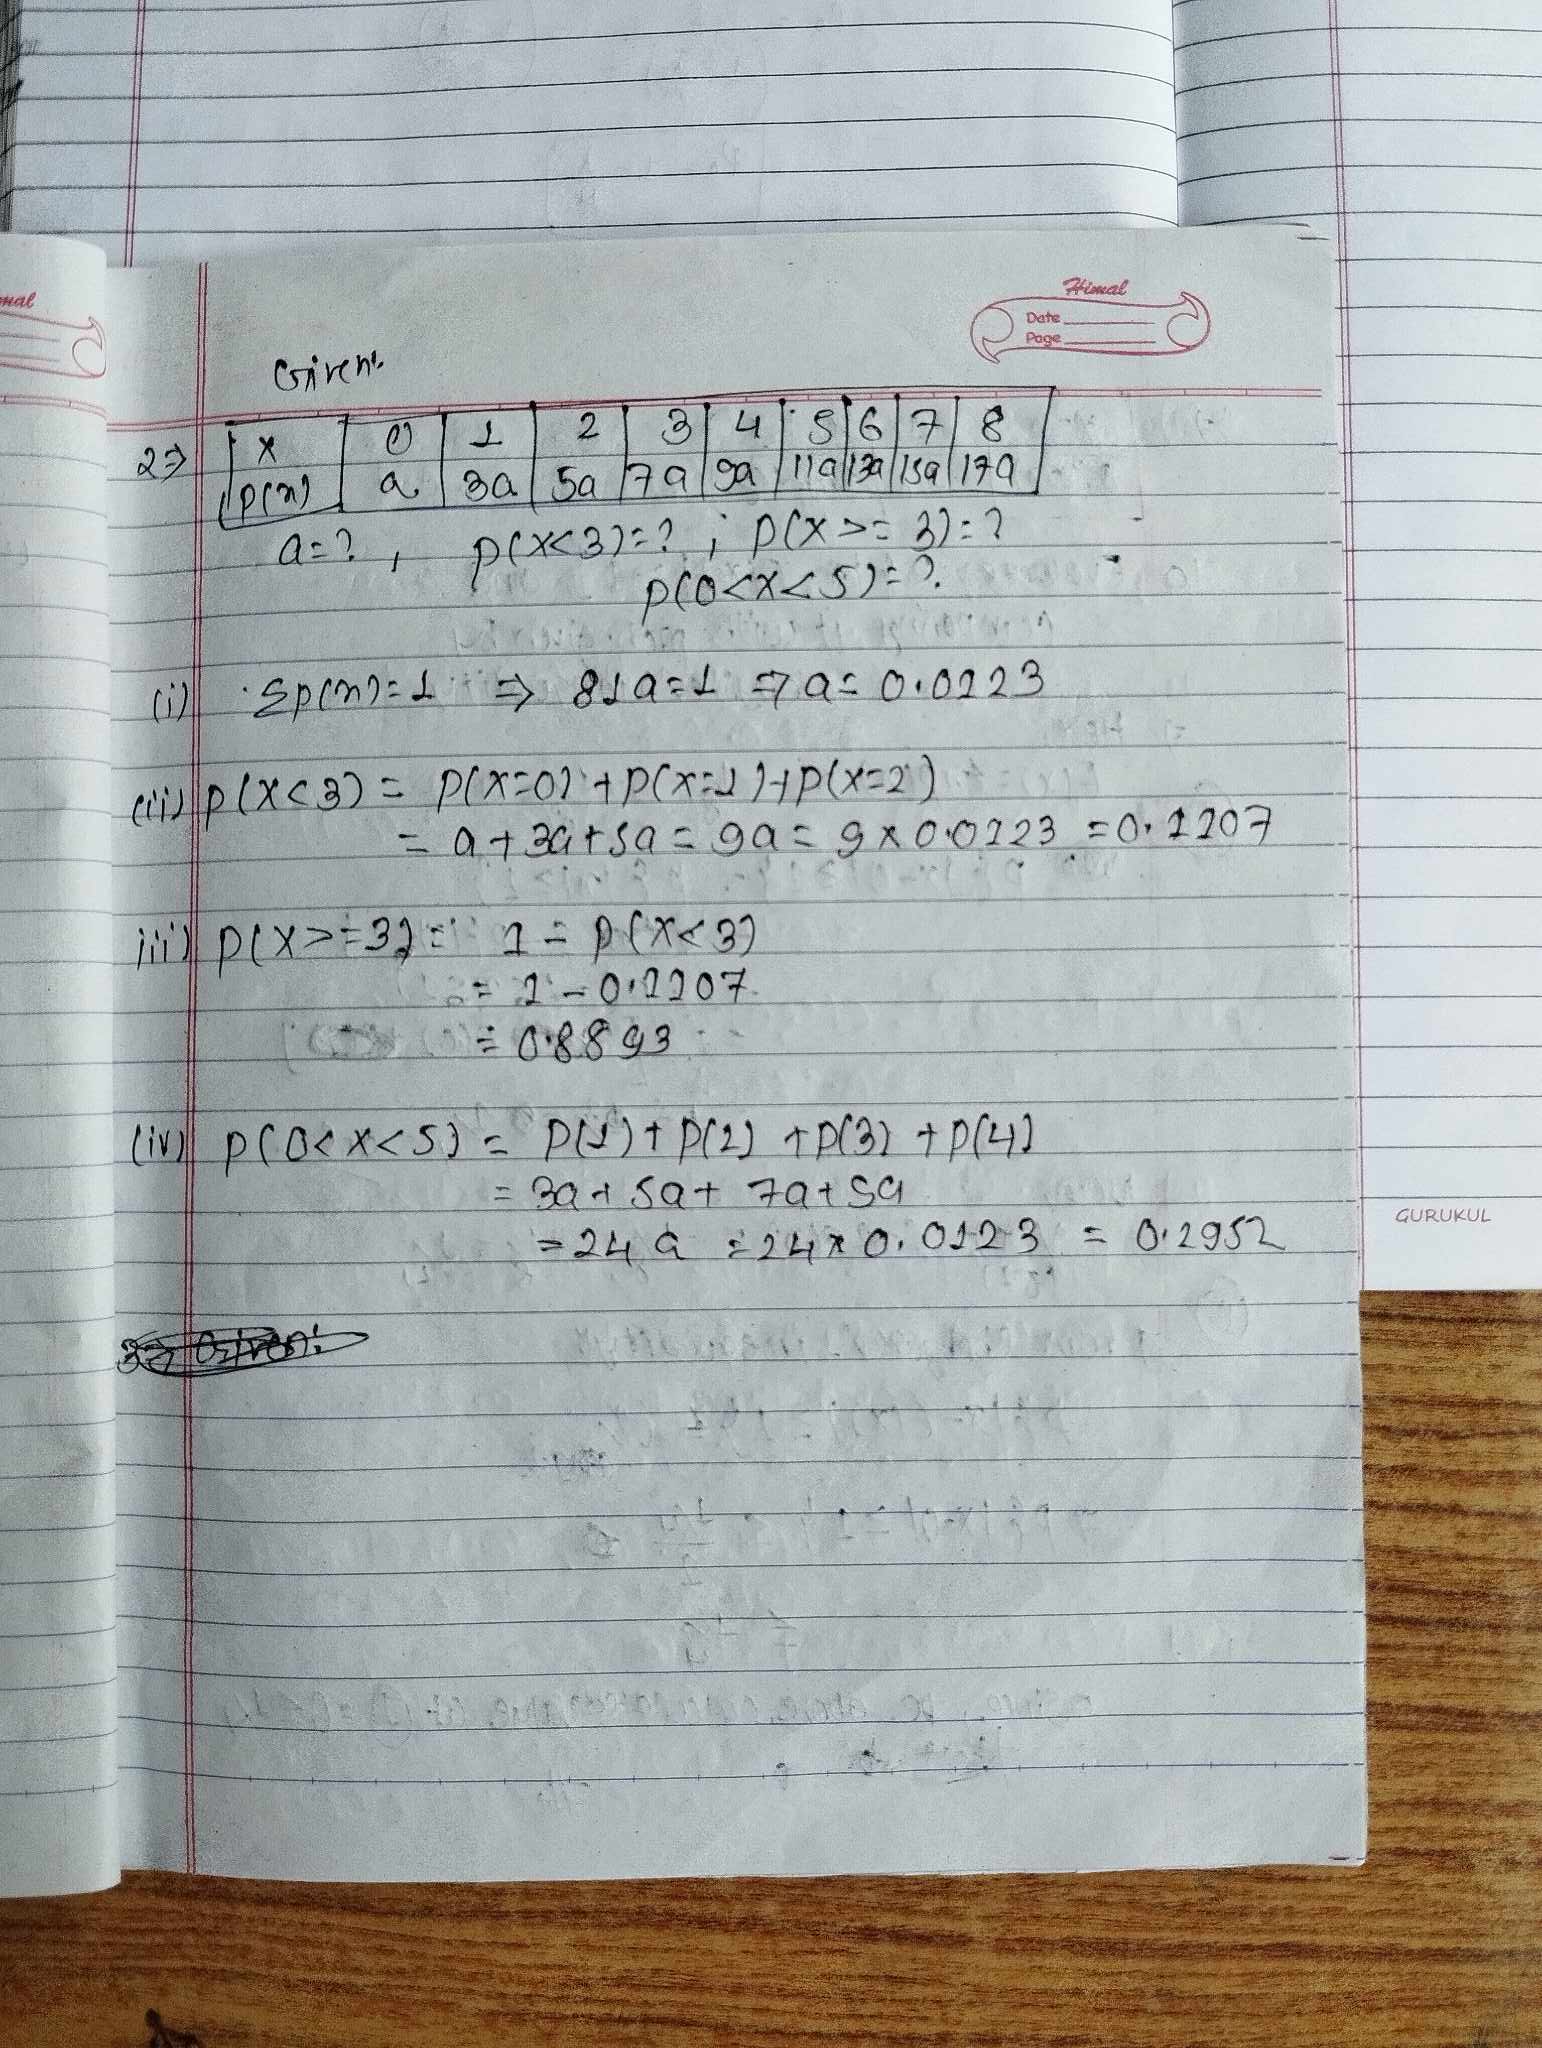 Himal
Date
Page
Given:
2⇒ x 0 1 2 3 4 5 6 7 8
p(x) a 3a 5a 7a 9a 11a 13a 15a 17a
a=? , p(x<3)=? ; p(x>=3)=?
p(0<x<5)=?
(i) Σp(x)=1 ⇒ 81a=1 ⇒ a= 0.0123
(ii) p(x<3) = p(x=0) + p(x=1) + p(x=2)
= a+3a+5a = 9a = 9 x 0.0123 = 0.1107
iii) p(x>=3) = 1 - p(x<3)
= 1 - 0.1107
= 0.8893
(iv) p(0<x<5) = p(1) + p(2) + p(3) + p(4)
= 3a + 5a + 7a + 9a
= 24 a = 24 x 0.0123 = 0.2952
3⇒ Given:
GURUKUL